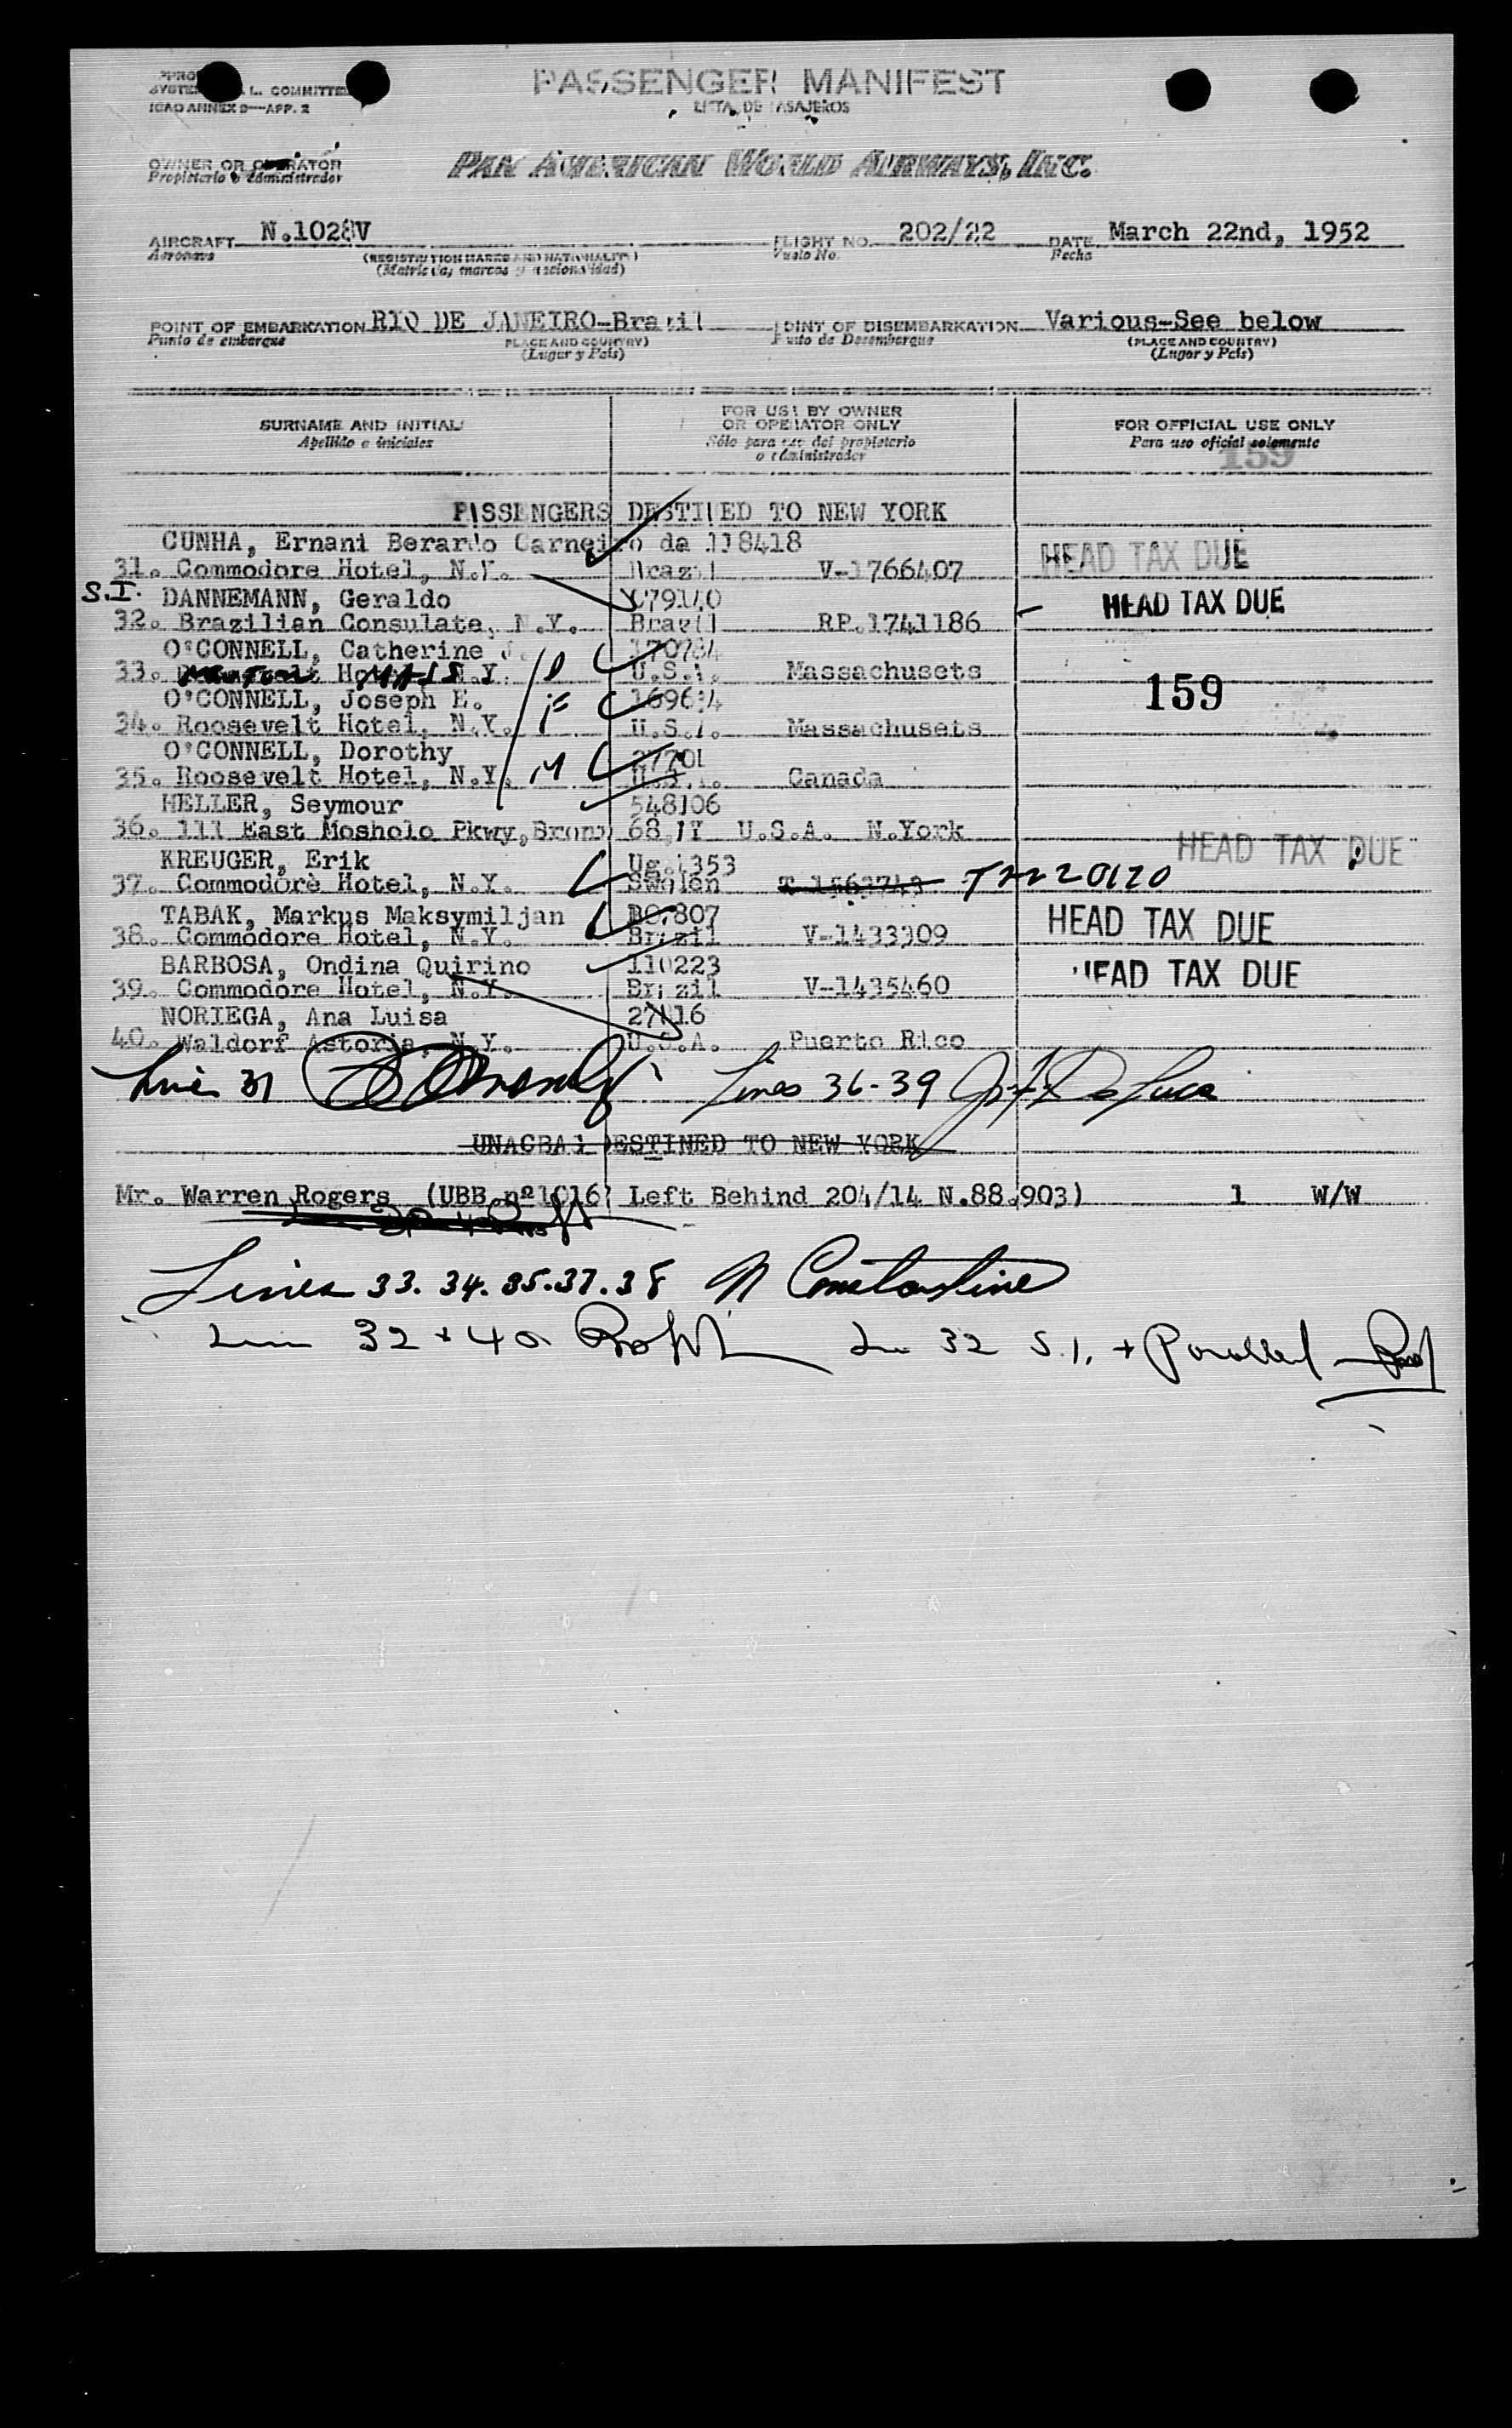 PASSENGER MANIFEST
LISTA DE PASAJEROS
ICAO ANNEX 9—APP. 2
OWNER OR OPERATOR
Propietario o administrador
PAN AMERICAN WORLD AIRWAYS, INC.
AIRCRAFT N.1028V FLIGHT NO. 202/22 DATE March 22nd, 1952
Aeronave (REGISTRATION MARKS AND NATIONALITY) Vuelo No. Fecha
(Matrícula, marcas y nacionalidad)
POINT OF EMBARKATION RIO DE JANEIRO-Brazil POINT OF DISEMBARKATION Various-See below
Punto de embarque (PLACE AND COUNTRY) Punto de Desembarque (PLACE AND COUNTRY)
(Lugar y País) (Lugar y País)
SURNAME AND INITIALS FOR USE BY OWNER OR OPERATOR ONLY FOR OFFICIAL USE ONLY
Apellido e iniciales Sólo para uso del propietario o administrador Para uso oficial solamente
159
PASSENGERS DESTINED TO NEW YORK
CUNHA, Ernani Berardo Carneiro da 118418
31. Commodore Hotel, N.Y. Brazil V-1766407 HEAD TAX DUE
S.I. DANNEMANN, Geraldo 079140 HEAD TAX DUE
32. Brazilian Consulate, N.Y. Brazil RP.1741186
O'CONNELL, Catherine J.
33. Hotel, N.Y. U.S.A. Massachusets
O'CONNELL, Joseph E. F 159
34. Roosevelt Hotel, N.Y. U.S.A. Massachusets
O'CONNELL, Dorothy
35. Roosevelt Hotel, N.Y. M U.S.A. Canada
HELLER, Seymour 548106
36. 111 East Mosholo Pkwy, Bronx 68,NY U.S.A. N.York HEAD TAX DUE
KREUGER, Erik
37. Commodore Hotel, N.Y. Sweden T-1563743
TABAK, Markus Maksymiljan HEAD TAX DUE
38. Commodore Hotel, N.Y. Brazil V-1433309
BARBOSA, Ondina Quirino 110223 HEAD TAX DUE
39. Commodore Hotel, N.Y. Brazil V-1435460
NORIEGA, Ana Luisa
40. Waldorf Astoria, N.Y. U.S.A. Puerto Rico
Line 31 Lines 36-39 De Luca
UNACBAG DESTINED TO NEW YORK
Mr. Warren Rogers (UBB nº1016 Left Behind 204/14 N.88.903) 1 W/W
Lines 33. 34. 35. 37. 38 N Constantine
32 + 40 32 S.I. + Parolled